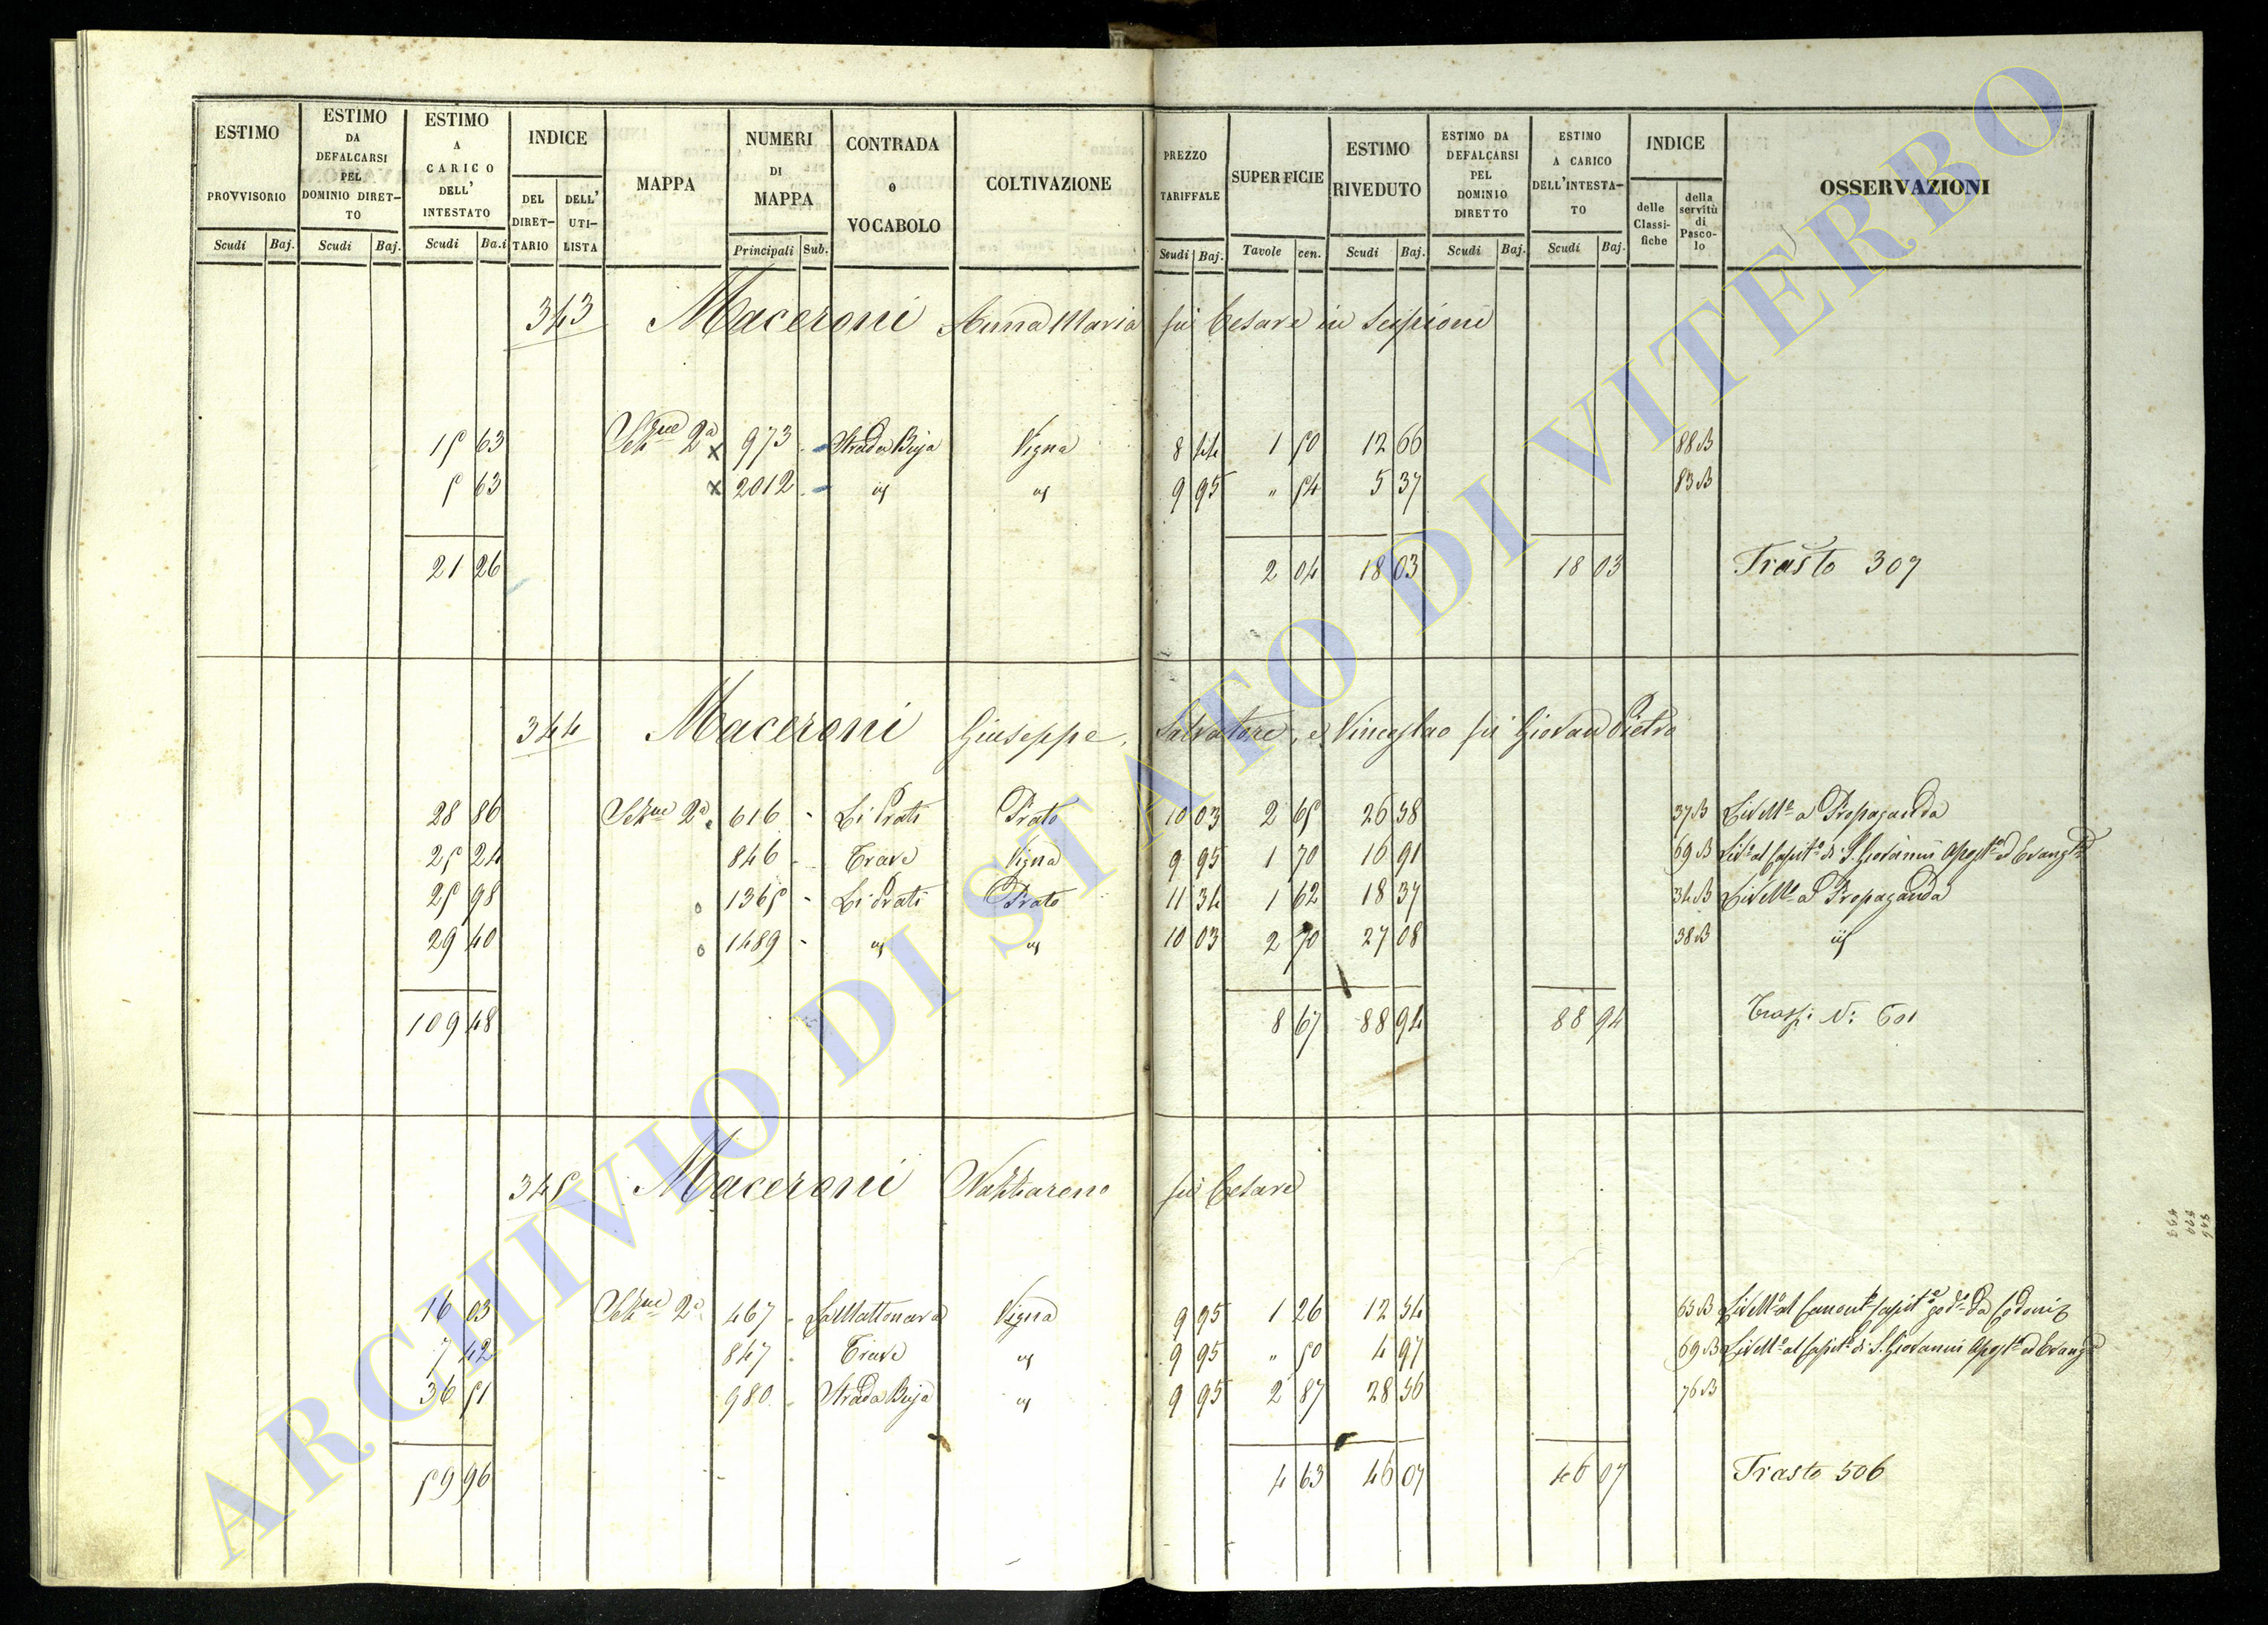 ESTIMO PROVVISORIO Scudi Baj.
ESTIMO DA DEFALCARSI PEL DOMINIO DIRETTO Scudi Baj.
ESTIMO A CARICO DELL' INTESTATO Scudi Ba.i
INDICE DEL DIRETTARIO DELL' UTILISTA
MAPPA
NUMERI DI MAPPA Principali Sub.
CONTRADA o VOCABOLO
COLTIVAZIONE
PREZZO TARIFFALE Scudi Baj.
SUPERFICIE Tavole cen.
ESTIMO RIVEDUTO Scudi Baj.
ESTIMO DA DEFALCARSI PEL DOMINIO DIRETTO Scudi Baj.
ESTIMO A CARICO DELL'INTESTATO Scudi Baj.
INDICE delle Classifiche della servitù di Pascolo
OSSERVAZIONI
343 Maceroni Anna Maria fu Cesare in Scipioni
15 63 2a x 973 Strada Buja Vigna 8 44 1 50 12 66 88 B
5 63 x 2012 9 95 " 54 5 37 83 B
21 26 2 04 18 03 18 03 Trasto 307
344 Maceroni Giuseppe, Salvatore, e Vinceslao fu Giovan Pietro
28 86 2a 616 Li Prati Prato 10 03 2 65 26 58 37 B a Propaganda
25 24 846 Trave Vigna 9 95 1 70 16 91 69 B al di S. Giovanni
25 98 1365 Li Prati Prato 11 34 1 62 18 37 34 B a Propaganda
29 40 1489 10 03 2 70 27 08 38 B
109 48 8 67 88 94 88 94 601
345 Maceroni Nazzareno fu Cesare
16 03 2a 467 La Mattonara Vigna 9 95 1 26 12 54 63 B
7 42 847 Trave 9 95 " 50 4 97 69 B al di S. Giovanni
36 51 980 Strada Buja 9 95 2 87 28 56 76 B
59 96 4 63 46 07 46 07 Trasto 506
ARCHIVIO DI STATO DI VITERBO